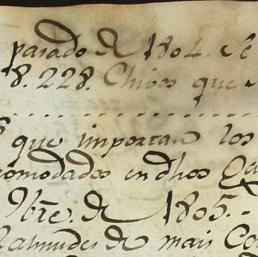 pasado de 1804. e
8.228. Chivos que
que importan los
comodados en dhos
9bre. de 1805.
Almudes de mais